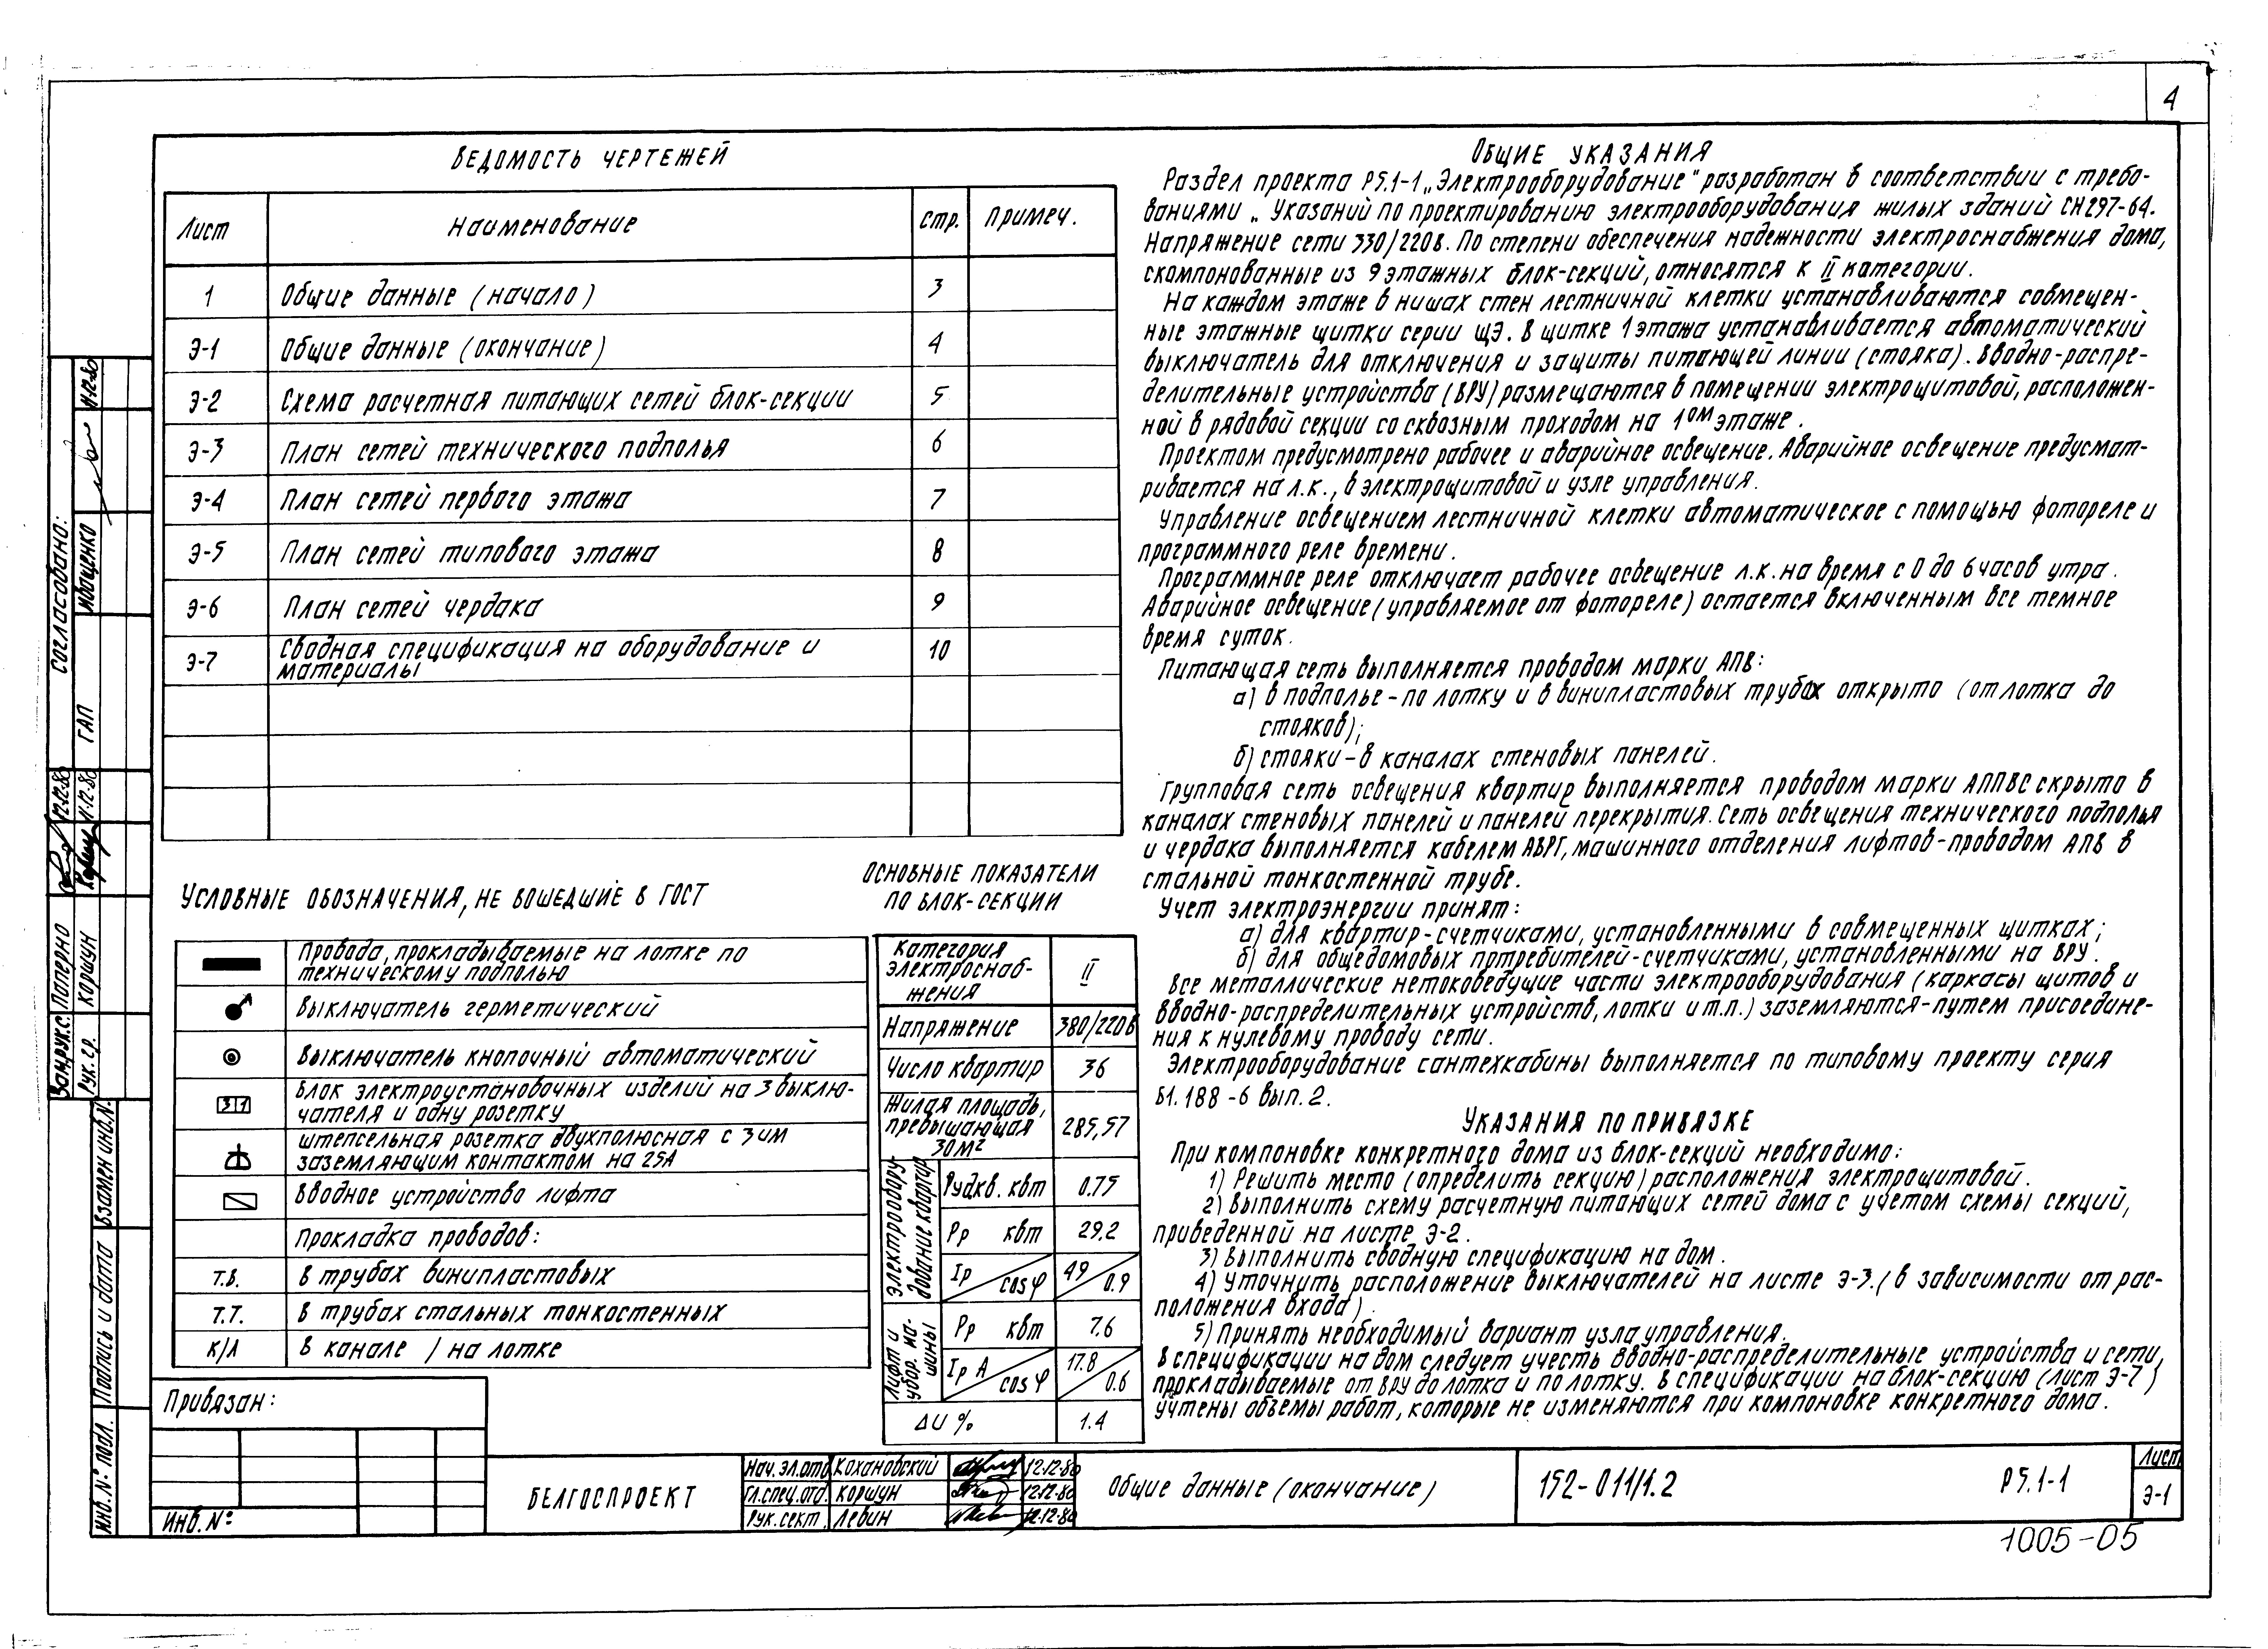 4
Ведомость чертежей
Лист Наименование Стр. Примеч.
1 Общие данные (начало) 3
Э-1 Общие данные (окончание) 4
Э-2 Схема расчетная питающих сетей блок-секции 5
Э-3 План сетей технического подполья 6
Э-4 План сетей первого этажа 7
Э-5 План сетей типового этажа 8
Э-6 План сетей чердака 9
Э-7 Сводная спецификация на оборудование и 10
материалы
Условные обозначения, не вошедшие в ГОСТ
Провода, прокладываемые на лотке по
техническому подполью
Выключатель герметический
Выключатель кнопочный автоматический
3 1 Блок электроустановочных изделий на 3 выклю-
чателя и одну розетку
Штепсельная розетка двухполюсная с 3им
заземляющим контактом на 25А
Вводное устройство лифта
Прокладка проводов:
Т.В. В трубах винипластовых
Т.Т. В трубах стальных тонкостенных
К/Л В канале / на лотке
Основные показатели
по блок-секции
Категория
электроснаб-
жения II
Напряжение 380/220в
Число квартир 36
Жилая площадь,
превышающая
30м² 285,57
Электрообору-
дование квартир
Рудкв. квт 0.75
Рр квт 29.2
Iр / cos φ 49 / 0.9
Лифт и
убор. ма-
шины
Рр квт 7.6
Iр А / cos φ 17.8 / 0.6
ΔU % 1.4
Общие указания
Раздел проекта Р5.1-1 „Электрооборудование" разработан в соответствии с требо-
ваниями „Указаний по проектированию электрооборудования жилых зданий СН297-64.
Напряжение сети 330/220в. По степени обеспечения надежности электроснабжения дома,
скомпонованные из 9 этажных блок-секций, относятся к II категории.
На каждом этаже в нишах стен лестничной клетки устанавливаются совмещен-
ные этажные щитки серии ЩЭ. В щитке 1 этажа устанавливается автоматический
выключатель для отключения и защиты питающей линии (стояка). Вводно-распре-
делительные устройства (ВРУ) размещаются в помещении электрощитовой, расположен-
ной в рядовой секции со сквозным проходом на 1ом этаже.
Проектом предусмотрено рабочее и аварийное освещение. Аварийное освещение предусмат-
ривается на л.к., в электрощитовой и узле управления.
Управление освещением лестничной клетки автоматическое с помощью фотореле и
программного реле времени.
Программное реле отключает рабочее освещение л.к. на время с 0 до 6 часов утра.
Аварийное освещение (управляемое от фотореле) остается включенным все темное
время суток.
Питающая сеть выполняется проводом марки АПВ:
а) в подполье - по лотку и в винипластовых трубах открыто (от лотка до
стояков);
б) стояки - в каналах стеновых панелей.
Групповая сеть освещения квартир выполняется проводом марки АППВС скрыто в
каналах стеновых панелей и панелей перекрытия. Сеть освещения технического подполья
и чердака выполняется кабелем АВРГ, машинного отделения лифтов - проводом АПВ в
стальной тонкостенной трубе.
Учет электроэнергии принят:
а) для квартир - счетчиками, установленными в совмещенных щитках;
б) для общедомовых потребителей - счетчиками, установленными на ВРУ.
Все металлические нетоковедущие части электрооборудования (каркасы щитов и
вводно-распределительных устройств, лотки и т.п.) заземляются - путем присоедине-
ния к нулевому проводу сети.
Электрооборудование сантехкабины выполняется по типовому проекту серия
Б1.188-6 вып. 2.
Указания по привязке
При компоновке конкретного дома из блок-секций необходимо:
1) Решить место (определить секцию) расположения электрощитовой.
2) Выполнить схему расчетную питающих сетей дома с учетом схемы секций,
приведенной на листе Э-2.
3) Выполнить сводную спецификацию на дом.
4) Уточнить расположение выключателей на листе Э-3. (в зависимости от рас-
положения входа).
5) Принять необходимый вариант узла управления.
В спецификации на дом следует учесть вводно-распределительные устройства и сети,
прокладываемые от ВРУ до лотка и по лотку. В спецификации на блок-секцию (лист Э-7)
учтены объемы работ, которые не изменяются при компоновке конкретного дома.
Согласовано:
ГАП Иващенко
Зам.рук.с. Паперно 12.12.80
Рук. гр. Коршун
Взамен инв.№
Подпись и дата
Инв. № подл.
Привязан:
Инв. №
БЕЛГОСПРОЕКТ
Нач. эл.отд Кохановский 12.12.80
Гл.спец.отд. Коршун 12.12.80
Рук. сект. Левин 12.12.80
Общие данные (окончание)
152-011/1.2
Р5.1-1
Лист
Э-1
1005-05